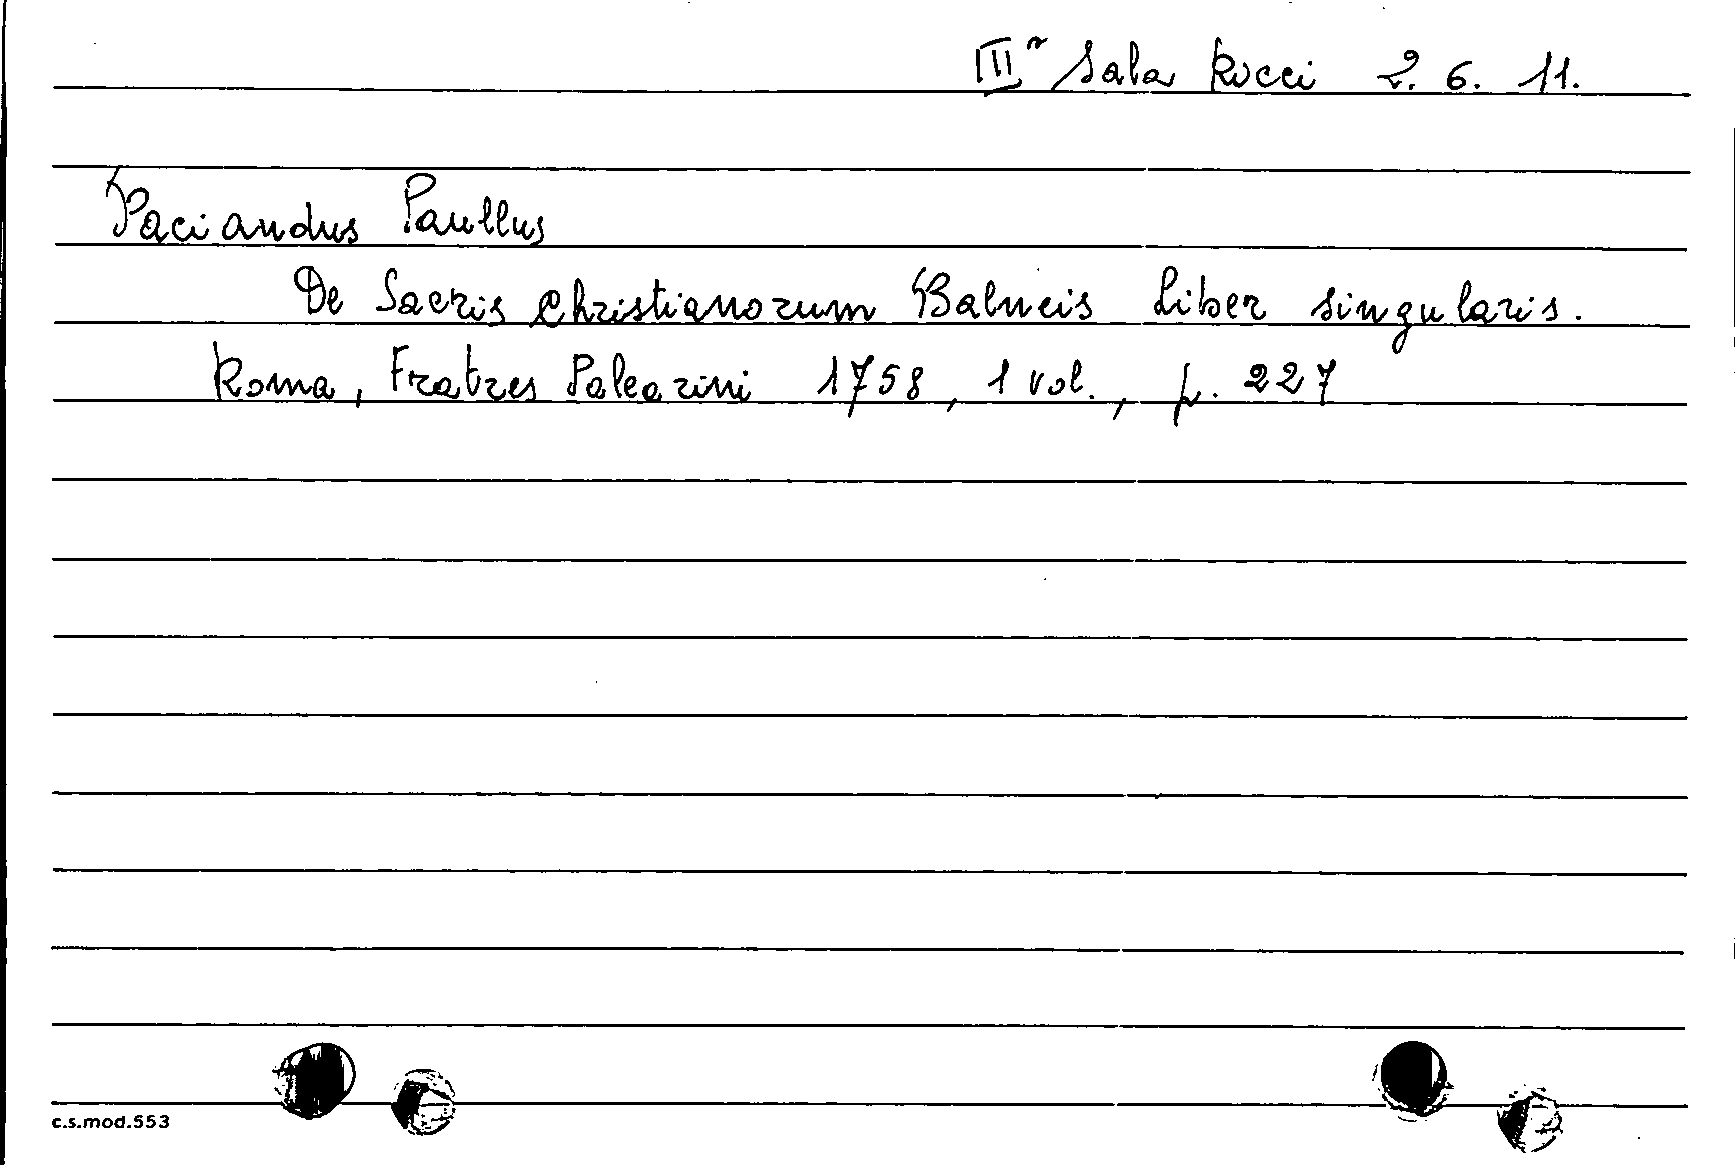 IIIª Sala Rocci 2. 6. 11.
Paciandus Paullus
De Sacris Christianorum Balneis Liber singularis.
Roma, Fratres Palearini 1758, 1 vol., p. 227
c.s.mod.553